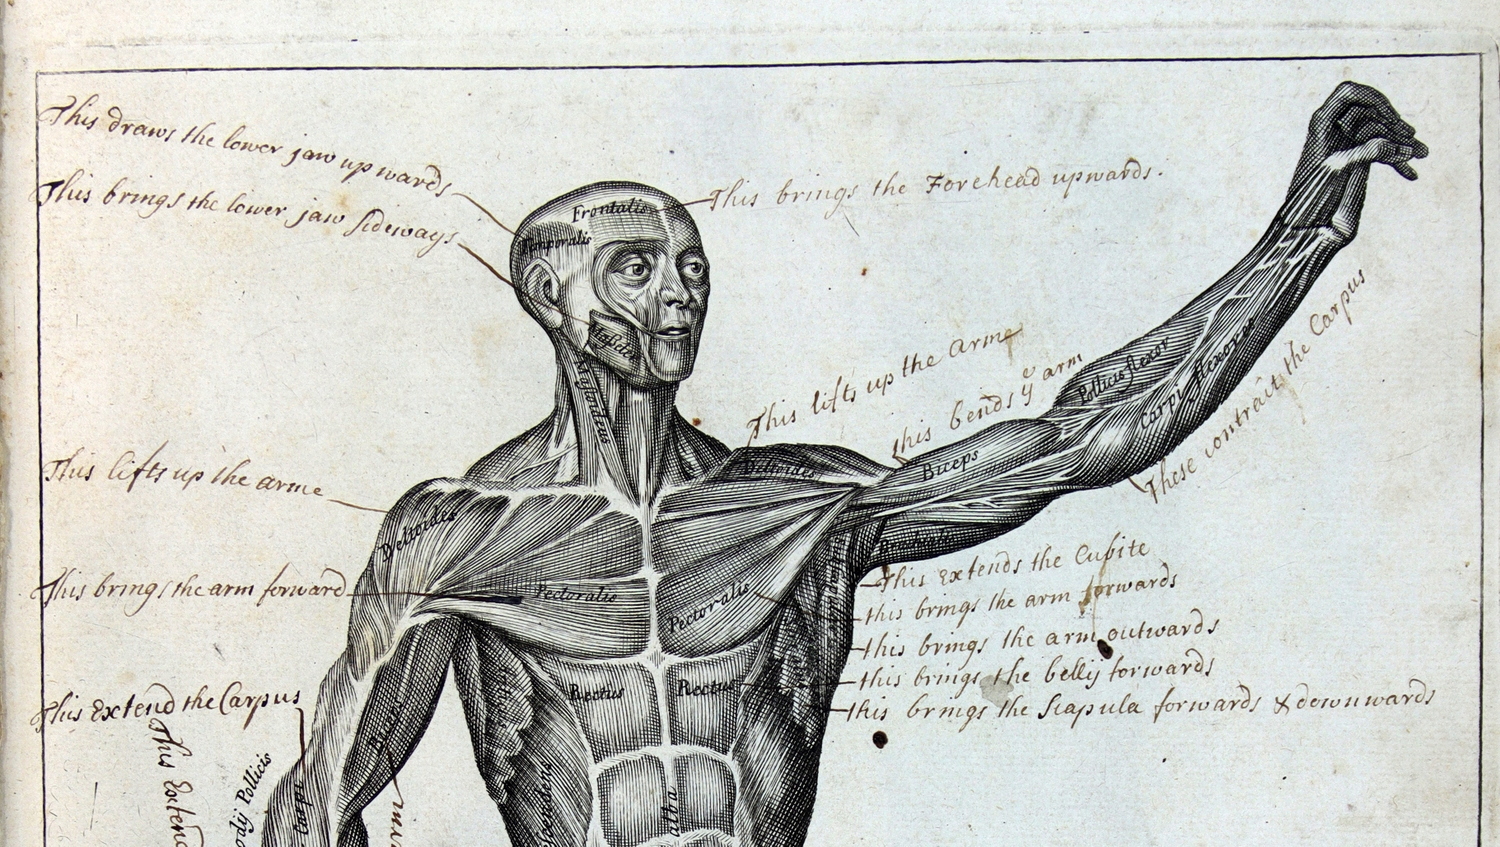 This draws the lower jaw upwards
This brings the lower jaw sideways
This brings the Forehead upwards.
Frontalis
Temporalis
Masseter
Mastoideus
This lifts up the arme
this bends ye arm
Pollicis flexor
Carpi flexores
These contrait the Carpus
Biceps
Deltoides
This lifts up the arme
Deltoides
This brings the arm forward
Pectoralis
Pectoralis
This Extends the Cubite
this brings the arm forwards
this brings the arm outwards
this brings the belly forwards
this brings the Scapula forwards & downwards
Rectus
Rectus
This Extend the Carpus
This Extend
Biceps
Pollicis
Carpi
alba